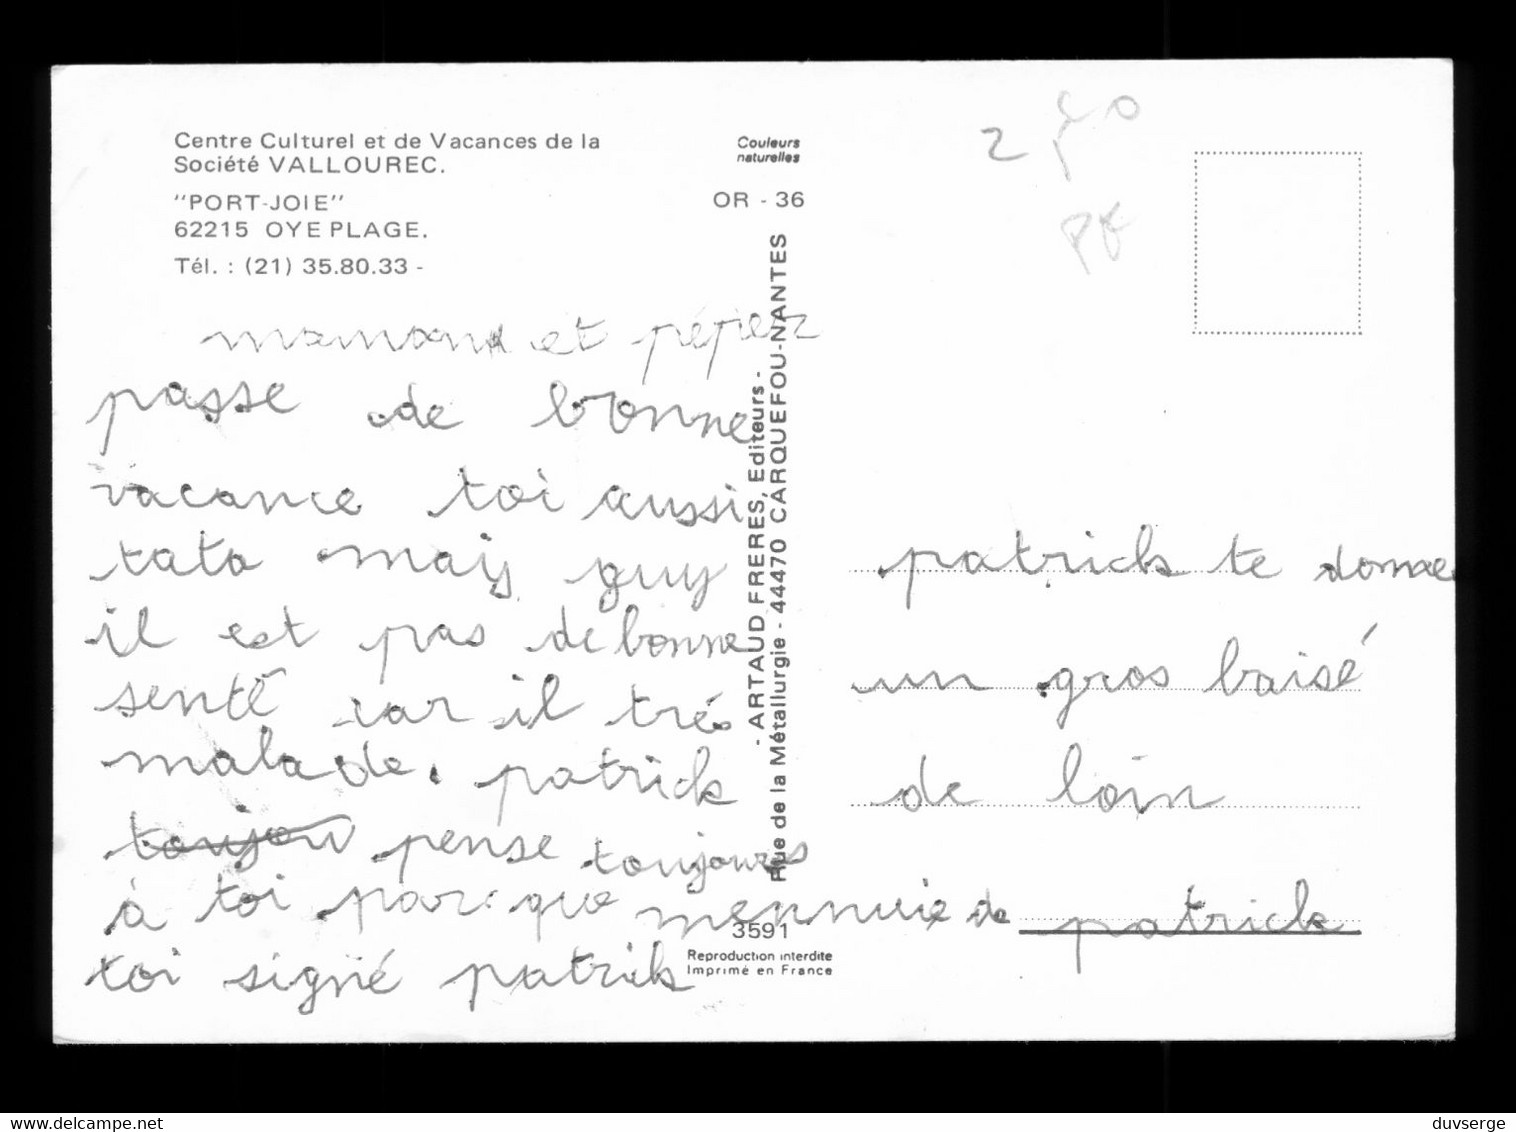 Centre Culturel et de Vacances de la
Société VALLOUREC.
"PORT-JOIE"
62215 OYE PLAGE.
Tél. : (21) 35.80.33 -
Couleurs
naturelles
OR - 36
2
PF
maman et
passe de bonne
vacance toi aussi
tata mais guy
il est pas de bonne
senté car il tré
malade. patrick
toujou pense toujours
à toi par que mennuie de
toi signé patrik
- ARTAUD FRERES, Editeurs -
Rue de la Métallurgie - 44470 CARQUEFOU-NANTES
3591
Reproduction interdite
Imprimé en France
patrick te domae
un gros baisé
de loin
patrick
delcampe.net
duvserge